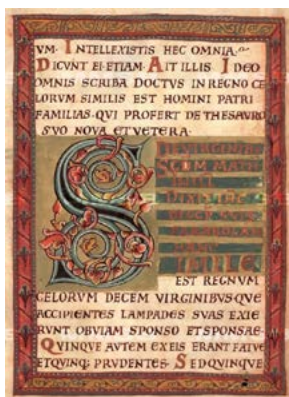 VM· INTELLEXISTIS HEC OMNIA·
DICVNT EI·ETIAM· AIT ILLIS· IDEO
OMNIS SCRIBA DOCTVS IN REGNO CE
LORVM SIMILIS EST HOMINI PATRI
FAMILIAS·QVI PROFERT DE THESAVRO
SVO NOVA ET VETERA·
S
EST REGNVM
CELORVM DECEM VIRGINIBVS·QVE
ACCIPIENTES LAMPADES SVAS EXIE
RVNT OBVIAM SPONSO ET SPONSAE·
QVINQVE AVTEM EX EIS ERANT FATVE
ET QVINQ; PRVDENTES· SED QVINQVE